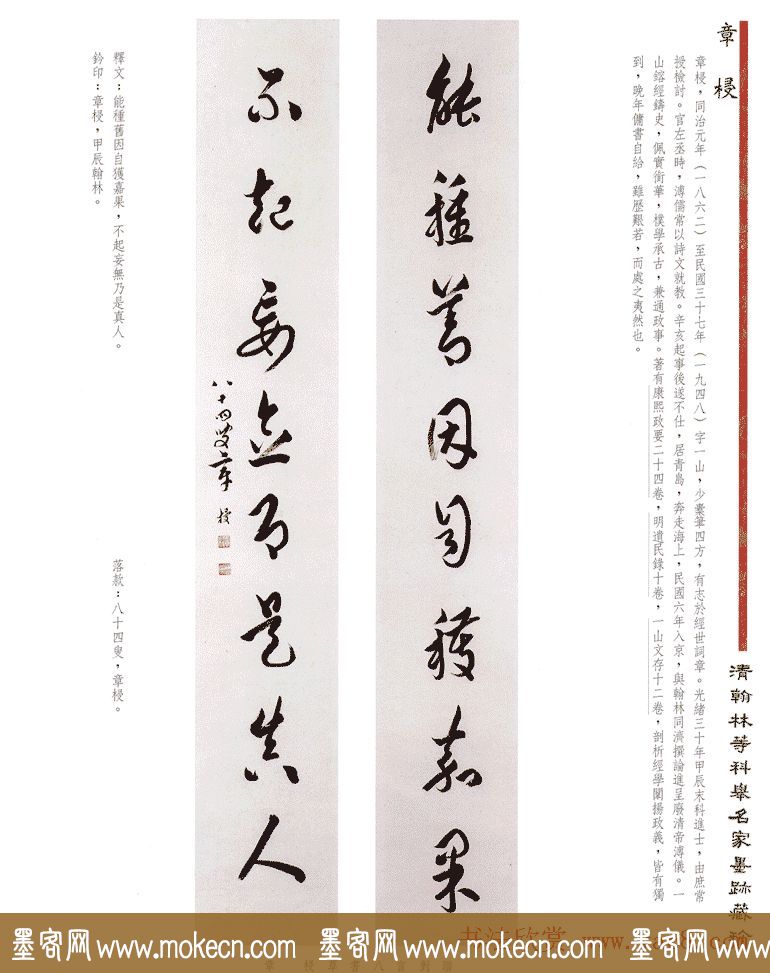 章梫
清翰林等科舉名家墨跡藏珍
章梫,同治元年(一八六二)至民國三十七年(一九四八)字一山,少囊筆四方,有志於經世詞章。光緒三十年甲辰末科進士,由庶常
授檢討。官左丞時,溥儒常以詩文就教。辛亥起事後遂不仕,居青島,奔走海上,民國六年入京,與翰林同濟撰論進呈廢清帝溥儀。一
山鎔經鑄史,佩實銜華,樸學承古,兼通政事。著有康熙政要二十四卷,明遺民錄十卷,一山文存十二卷,剖析經學闡揚政義,皆有獨
到,晚年傭書自給,雖歷艱若,而處之夷然也。
能種善因自穫嘉果
不起妄念即是真人
八十四叟章梫
釋文:能種舊因自獲嘉果,不起妄無乃是真人。 落款:八十四叟,章梫。
鈐印:章梫,甲辰翰林。
书法欣赏
墨客网 www.mokecn.com 墨客网 www.mokecn.com 墨客网 www.mokecn.com
章梫草書八言對聯